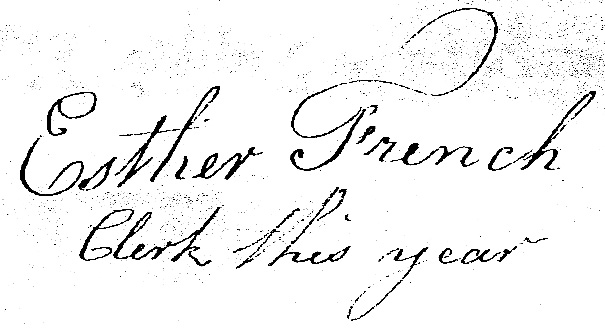 Esther French
Clerk this year